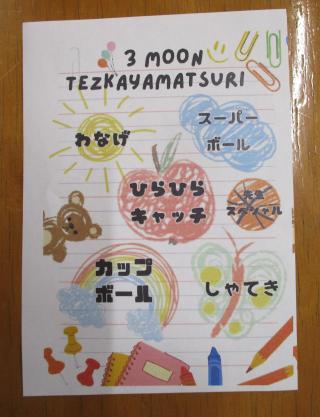 3 MOON
TEZKAYAMATSURI
わなげ
スーパー
ボール
ひらひら
キャッチ
スペシャル
カップ
ボール
しゃてき